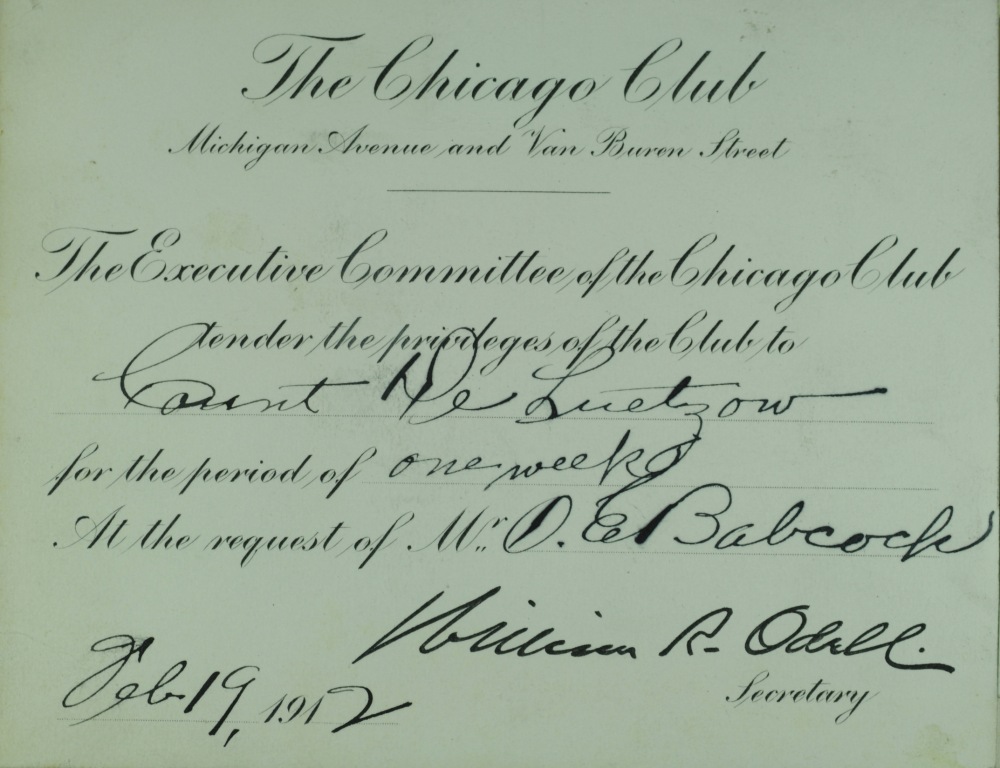 The Chicago Club
Michigan Avenue and Van Buren Street
The Executive Committee of the Chicago Club
tender the privileges of the Club to
Count De Luetzow
for the period of one week
At the request of Mr. O. E. Babcock
William R. Odell.
Secretary
Feb 19, 1912